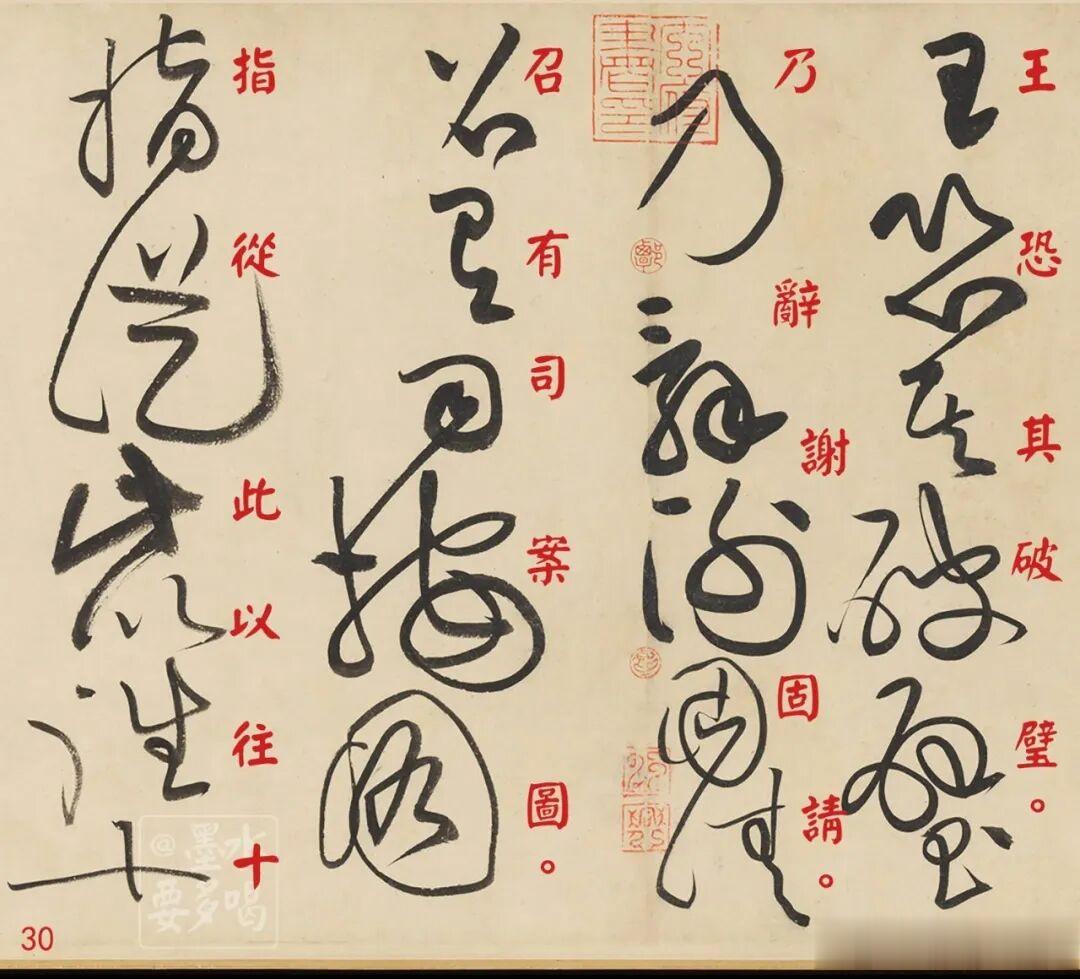 王恐其破璧。
乃辭謝固請。
召有司案圖。
指從此以往十
30
@墨水
要多喝